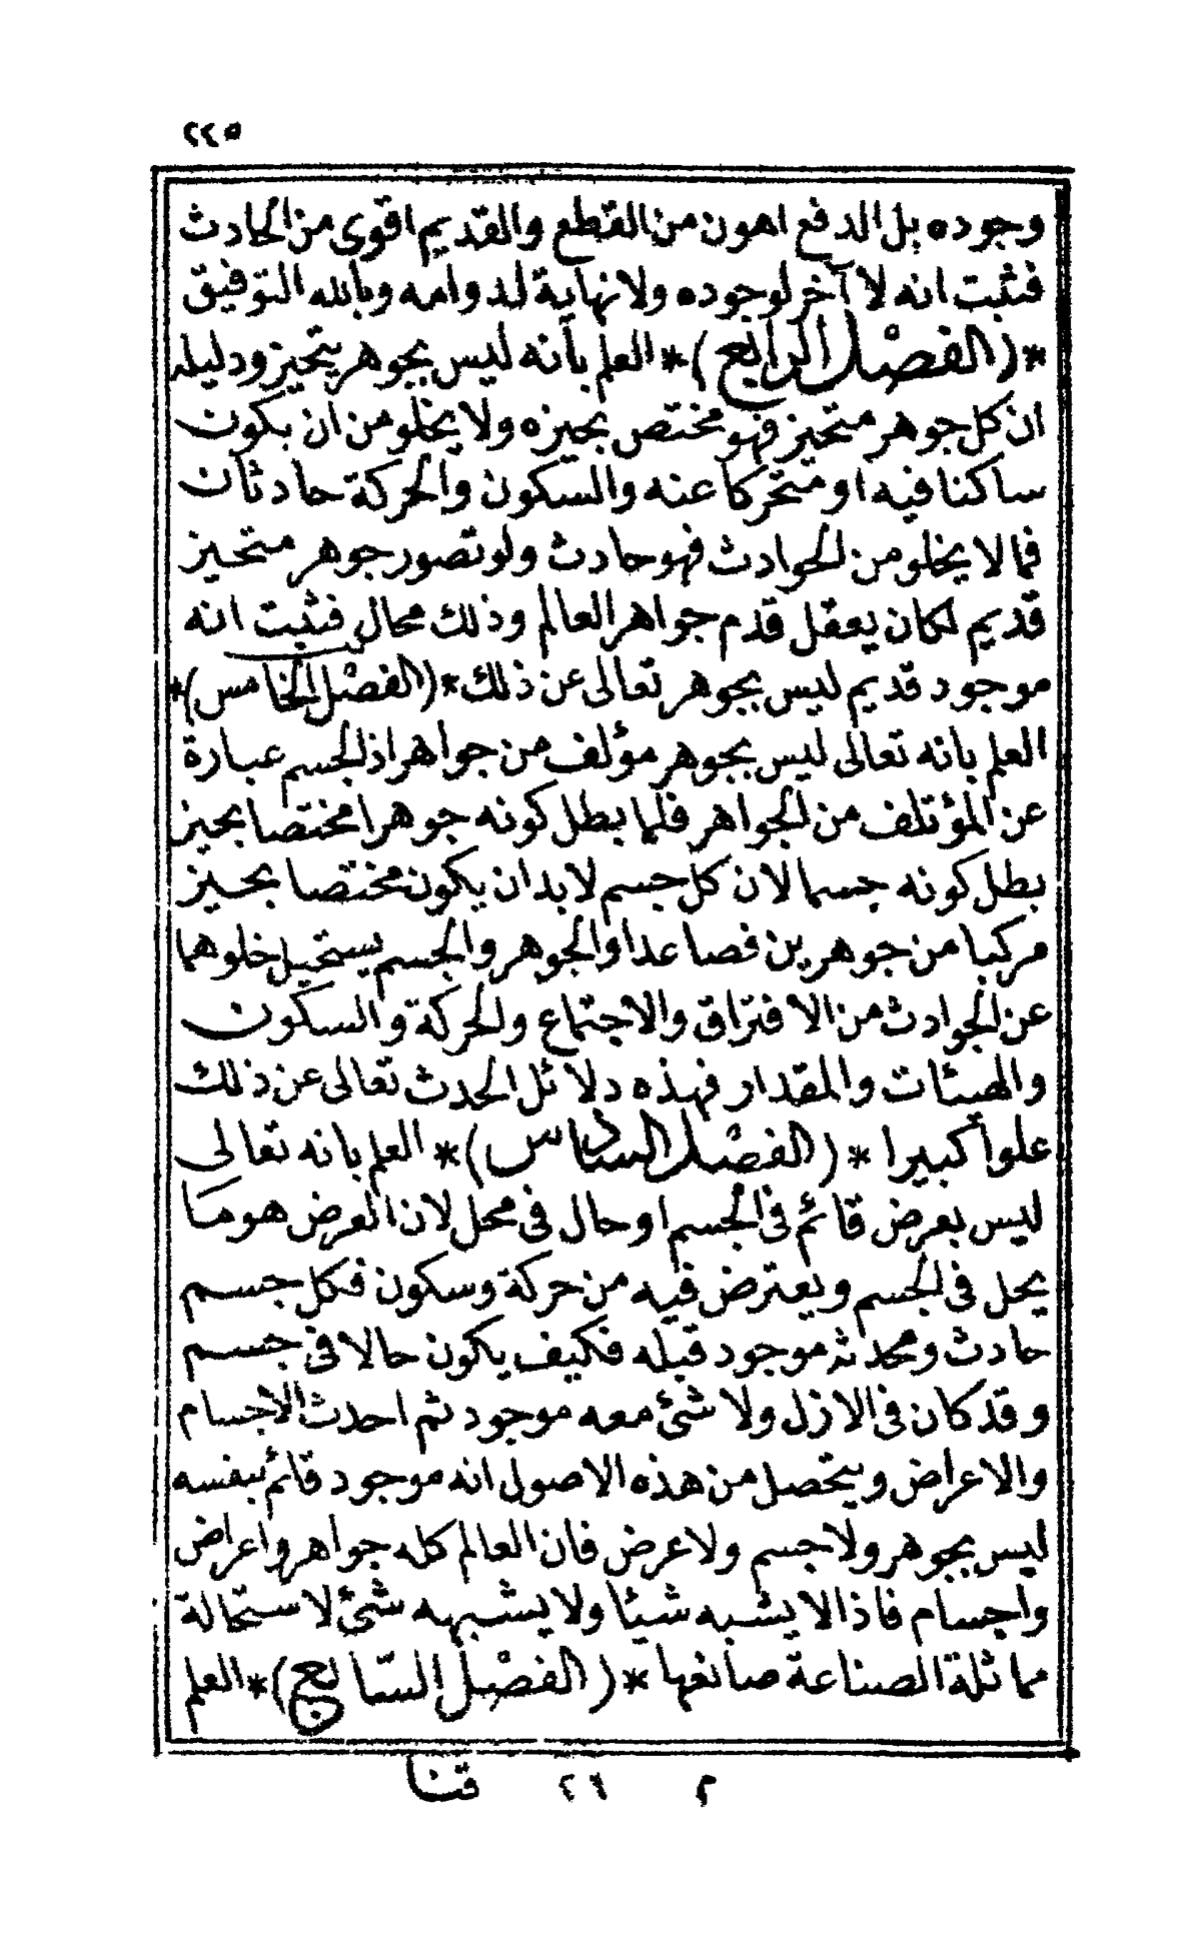 ٢٢٥
وجوده بل الدفع اهون من القطع والقديم اقوى من الحادث
فثبت انه لا آخر لوجوده ولا نهاية لدوامه وبالله التوفيق
*(الفصل الرابع)* العلم بأنه ليس بجوهر يتحيز ودليله
ان كل جوهر متحيز فهو مختص بحيزه ولا يخلو من ان يكون
ساكنا فيه او متحركا عنه والسكون والحركة حادثان
فما لا يخلو من الحوادث فهو حادث ولو تصور جوهر متحيز
قديم لكان يعقل قدم جواهر العالم وذلك محال فثبت انه
موجود قديم ليس بجوهر تعالى عن ذلك *(الفصل الخامس)*
العلم بانه تعالى ليس بجوهر مؤلف من جواهر اذ الجسم عبارة
عن المؤتلف من الجواهر فلما بطل كونه جوهرا مختصا بحيز
بطل كونه جسما لان كل جسم لا بد ان يكون مختصا بحيز
مركبا من جوهرين فصاعدا والجوهر والجسم يستحيل خلوهما
عن الحوادث من الافتراق والاجتماع والحركة والسكون
والهيئات والمقدار فهذه دلائل الحدث تعالى عن ذلك
علوا كبيرا *(الفصل السادس)* العلم بانه تعالى
ليس بعرض قائم فى الجسم او حال فى محل لان العرض هو ما
يحل فى الجسم ويعترض فيه من حركة وسكون فكل جسم
حادث ومحدثه موجود قبله فكيف يكون حالا فى جسم
وقد كان فى الازل ولا شئ معه موجود ثم احدث الاجسام
والاعراض ويتحصل من هذه الاصول انه موجود قائم بنفسه
ليس بجوهر ولا جسم ولا عرض فان العالم كله جواهر واعراض
واجسام فاذا لا يشبه شيئا ولا يشبهه شئ لاستحالة
مماثلة الصناعة صانعها *(الفصل السابع)* العلم
م ٢٩ قنا